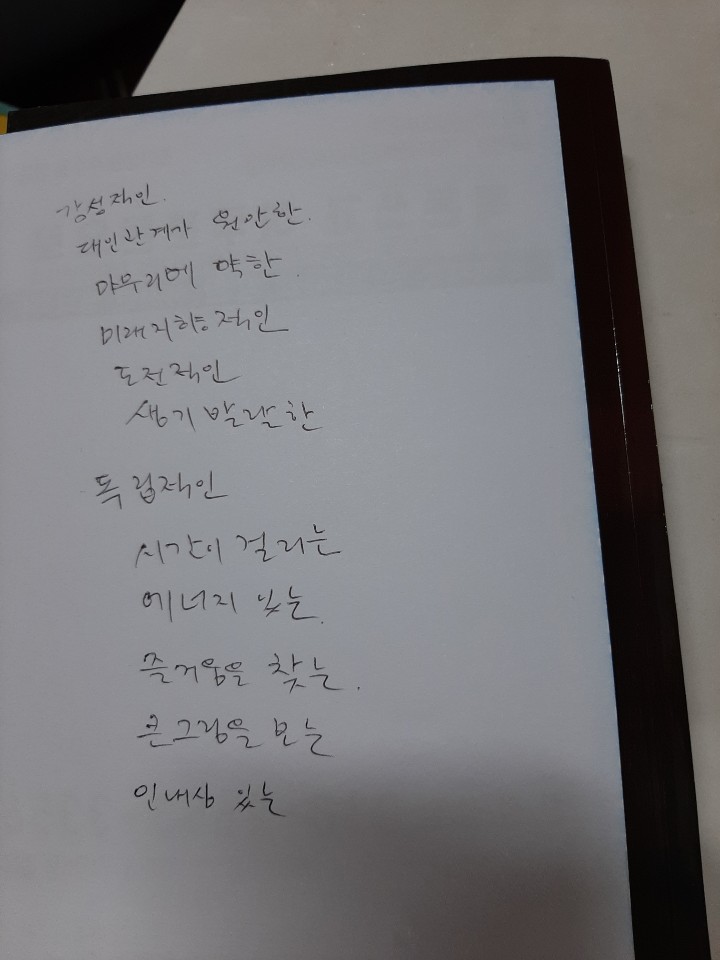 감성적인.
대인관계가 원안한.
마무리에 약한.
미래지향적인
도전적인
생기발랄한
독립적인
시간이 걸리는
에너지 있는.
즐거움을 찾는.
큰그림을 보는
인내심 있는